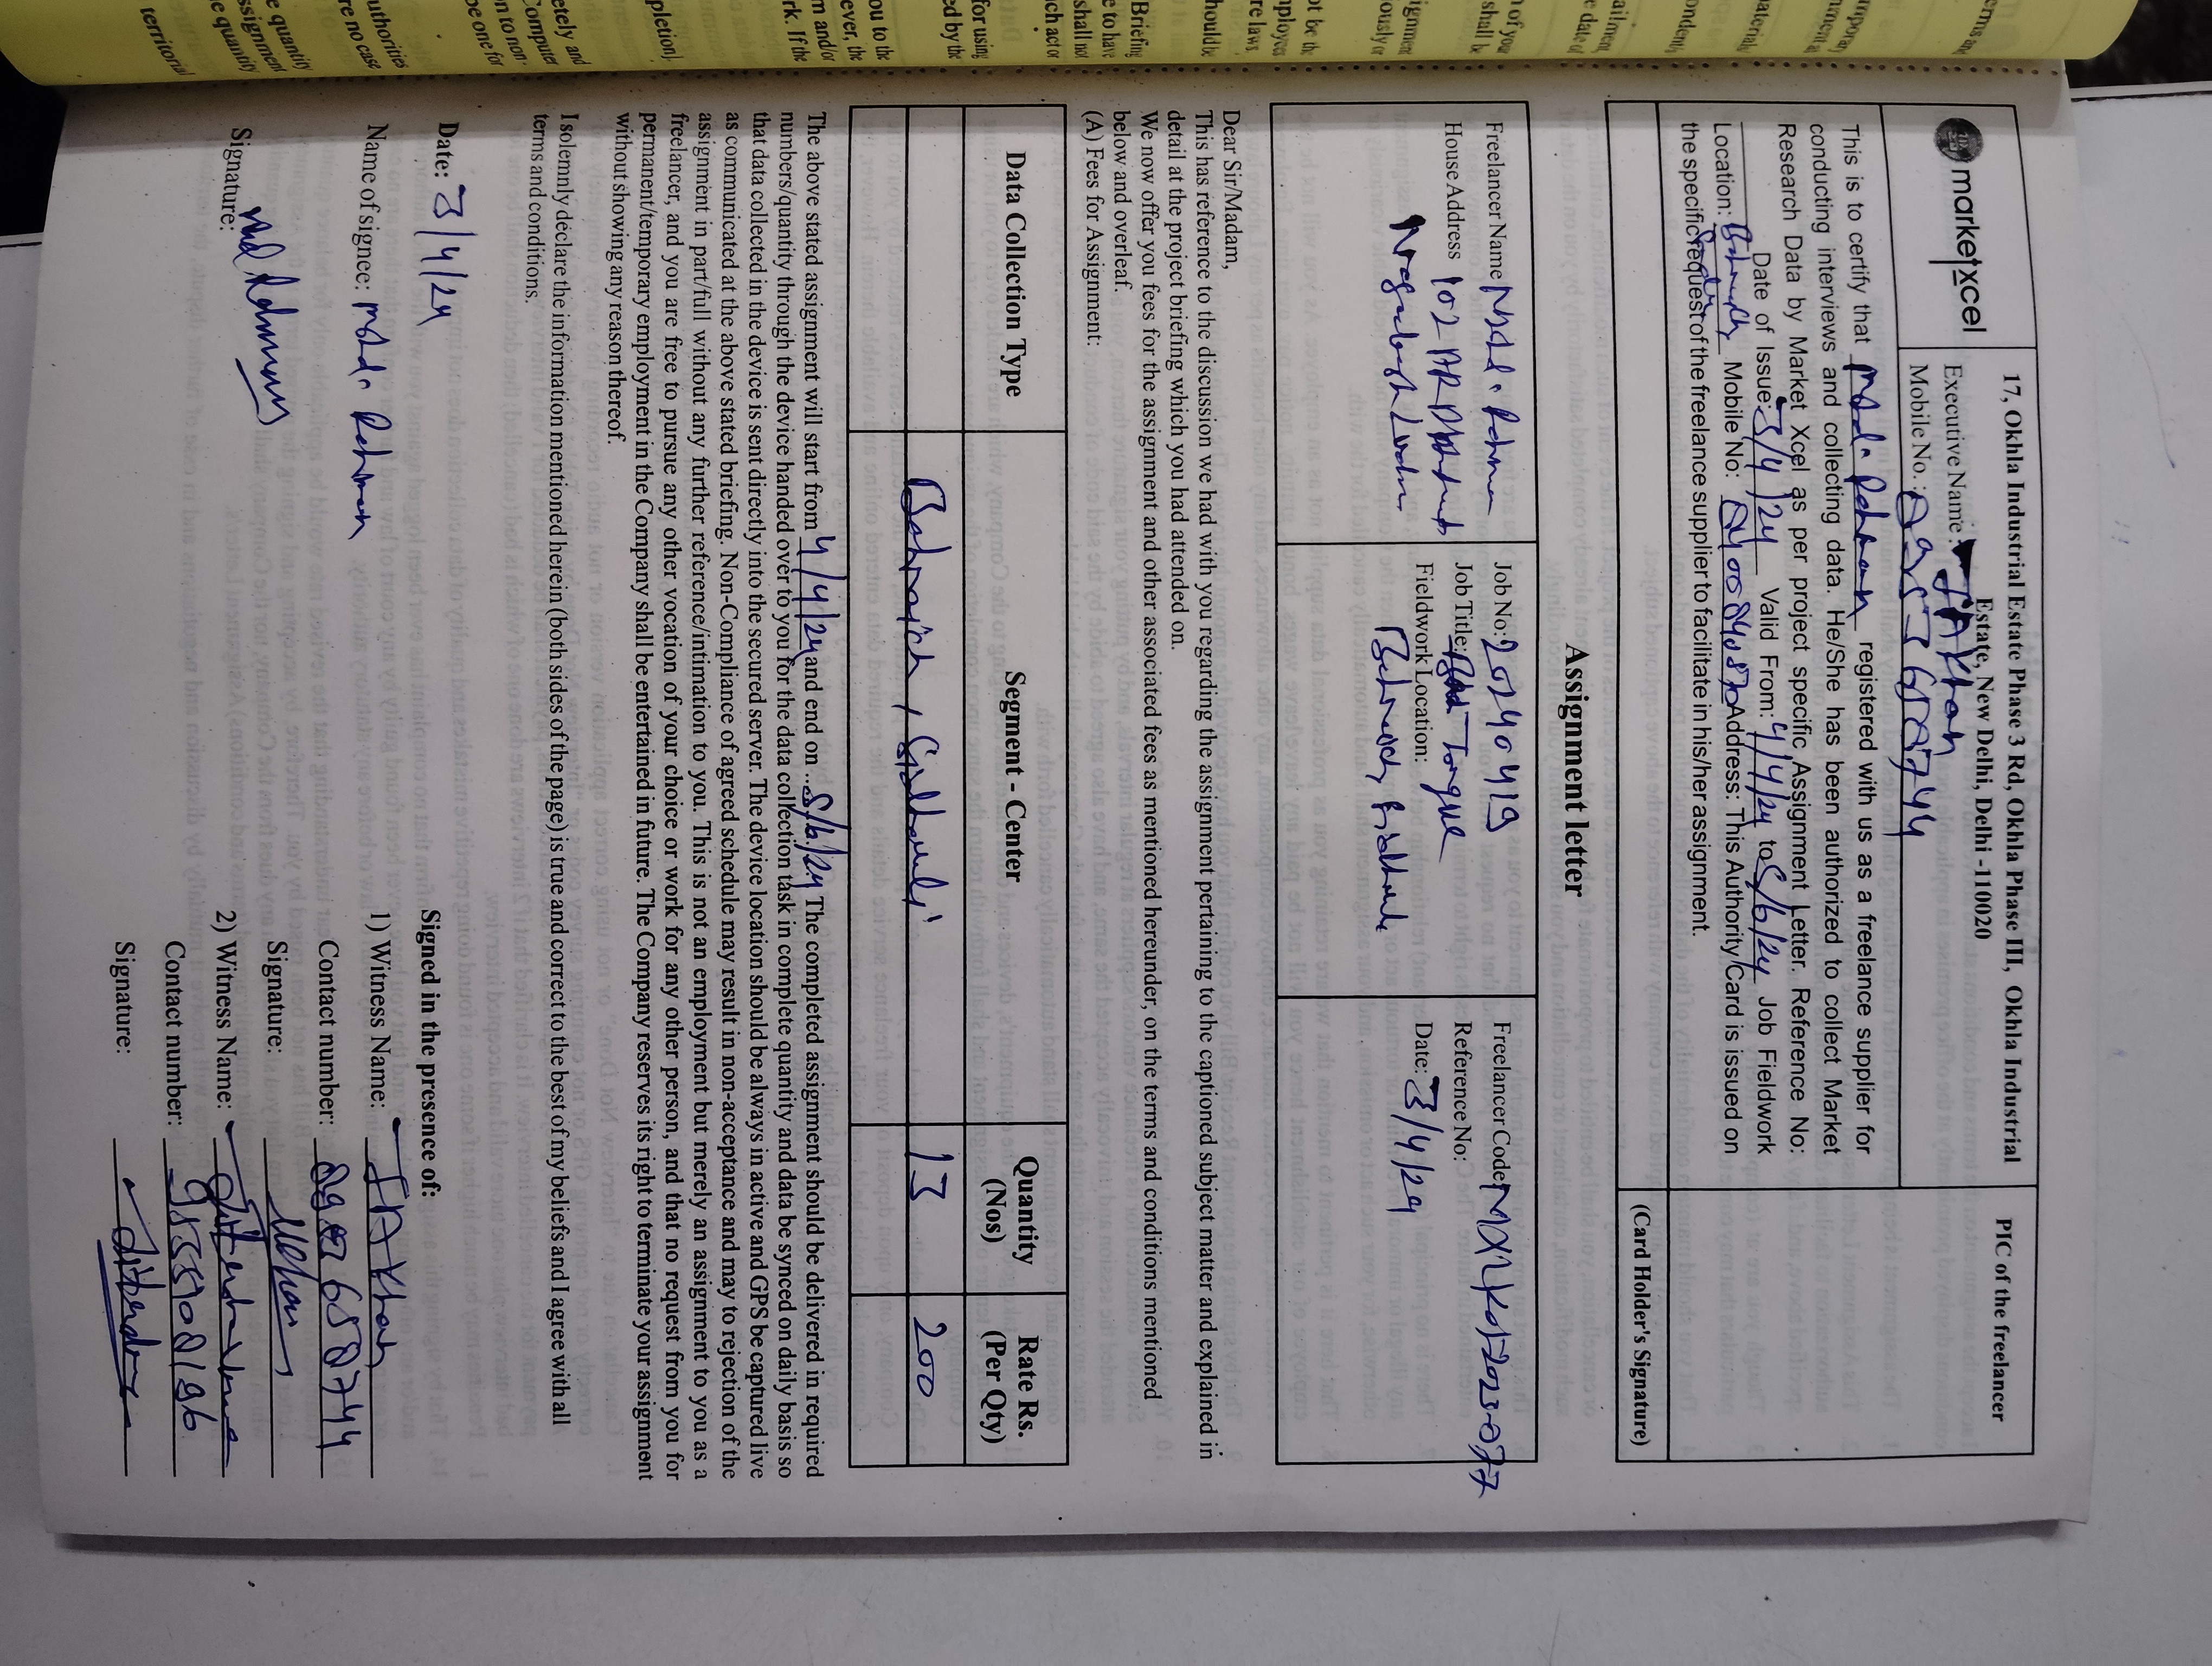 market xcel
17, Okhla Industrial Estate Phase 3 Rd, Okhla Phase III, Okhla Industrial
Estate, New Delhi, Delhi -110020
PIC of the freelancer
Executive Name: J A Khan
Mobile No.:
This is to certify that Mohd. Rehman registered with us as a freelance supplier for
conducting interviews and collecting data. He/She has been authorized to collect Market
Research Data by Market Xcel as per project specific Assignment Letter. Reference No:
Date of Issue: 3/4/24 Valid From: 4/4/24 to 5/6/24 Job Fieldwork
Location: Mobile No: Address: This Authority Card is issued on
the specific request of the freelance supplier to facilitate in his/her assignment.
(Card Holder's Signature)
Assignment letter
Freelancer Name Mohd. Rehman
House Address 102
Job No: 20240419
Job Title: Torque
Fieldwork Location:
Freelancer Code
Reference No:
Date: 3/4/24
Dear Sir/Madam,
This has reference to the discussion we had with you regarding the assignment pertaining to the captioned subject matter and explained in
detail at the project briefing which you had attended on.
We now offer you fees for the assignment and other associated fees as mentioned hereunder, on the terms and conditions mentioned
below and overleaf.
(A) Fees for Assignment:
Data Collection Type
Segment - Center
Quantity
(Nos)
Rate Rs.
(Per Qty)
Bahraich,
13
200
The above stated assignment will start from 4/4/24 and end on ... 5/6/24 The completed assignment should be delivered in required
numbers/quantity through the device handed over to you for the data collection task in complete quantity and data be synced on daily basis so
that data collected in the device is sent directly into the secured server. The device location should be always in active and GPS be captured live
as communicated at the above stated briefing. Non-Compliance of agreed schedule may result in non-acceptance and may to rejection of the
assignment in part/full without any further reference/intimation to you. This is not an employment but merely an assignment to you as a
freelancer, and you are free to pursue any other vocation of your choice or work for any other person, and that no request from you for
permanent/temporary employment in the Company shall be entertained in future. The Company reserves its right to terminate your assignment
without showing any reason thereof.
I solemnly declare the information mentioned herein (both sides of the page) is true and correct to the best of my beliefs and I agree with all
terms and conditions.
Date: 3/4/24
Name of signee: Mohd. Rehman
Signature:
Signed in the presence of:
1) Witness Name: J A Khan
Contact number:
Signature:
2) Witness Name:
Contact number:
Signature: